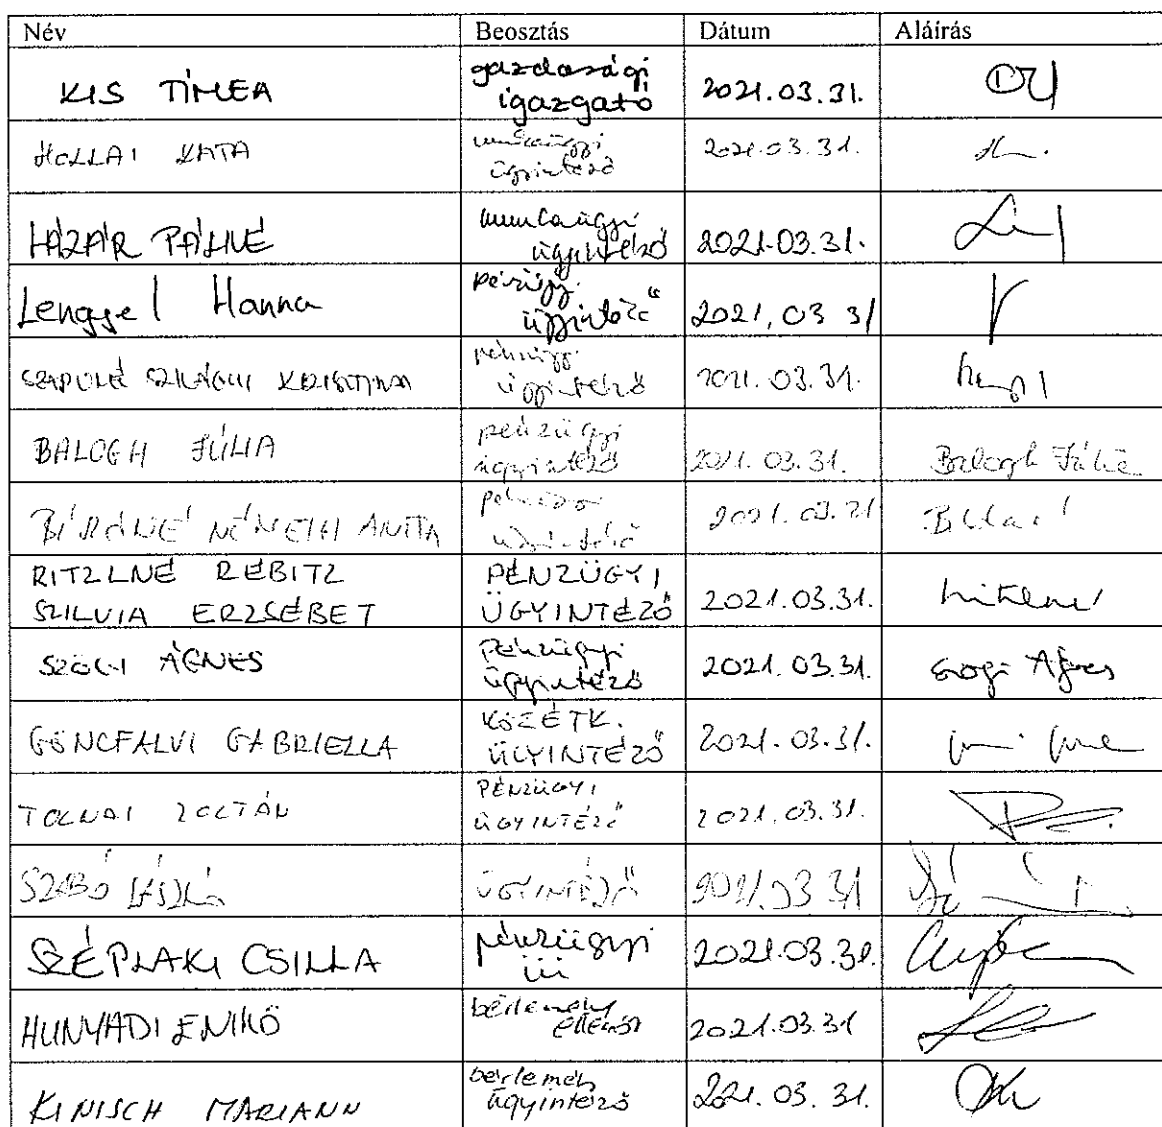 Név Beosztás Dátum Aláírás
KIS TÍMEA gazdasági igazgató 2021.03.31.
HOLLAI KATA munkaügyi ügyintéző 2021.03.31.
LÁZÁR PÁLNÉ munkaügyi ügyintéző 2021.03.31.
Lengyel Hanna pénzügyi ügyintéző 2021.03 31
SZILÁGYI KRISZTINA pénzügyi ügyintéző 2021.03.31.
BALOGH JÚLIA pénzügyi ügyintéző 2021.03.31. Balogh Júlia
BÍRÓNÉ NÉMETH ANITA 2021.03.31
RITZLNÉ REBITZ
SZILVIA ERZSÉBET
PÉNZÜGYI
ÜGYINTÉZŐ
2021.03.31.
SZÖGI ÁGNES pénzügyi ügyintéző 2021.03.31. Szögi Ágnes
GÖNCFALVI GABRIELLA KÖZÉTK. ÜGYINTÉZŐ 2021.03.31.
TOLNAI ZOLTÁN PÉNZÜGYI ÜGYINTÉZŐ 2021.03.31.
SZABÓ LÁSZLÓ ÜGYINTÉZŐ 2021.03 31
SZÉPLAKI CSILLA pénzügyi üi 2021.03.31.
HUNYADI ENIKŐ bérlemény ellenőr 2021.03.31
KINISCH MARIANN bérlemény ügyintéző 2021.03.31.